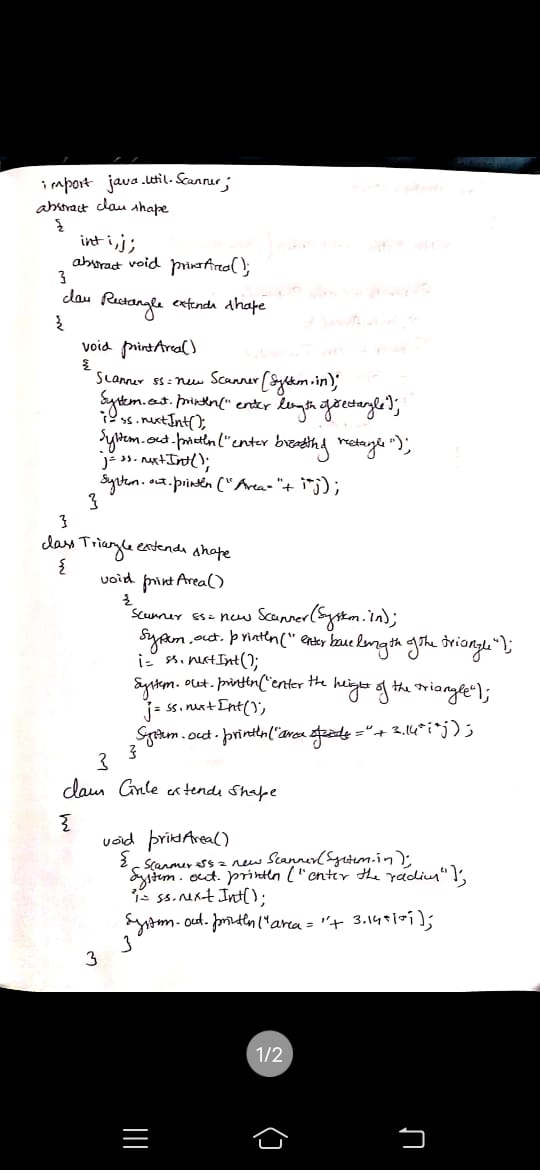 import java.util.Scanner;
abstract class shape
{
int i,j;
abstract void printArea();
}
class Rectangle extends shape
{
void printArea()
{
Scanner ss = new Scanner(System.in);
System.out.println("enter length of rectangle);
i= ss.nextInt();
System.out.println("enter breadth of rectagle");
j= ss.nextInt();
System.out.println("Area="+ i*j);
}
}
class Triangle extends shape
{
void printArea()
{
Scanner ss= new Scanner(System.in);
System.out.println(" enter base length of the triangle");
i= ss.nextInt();
System.out.println("enter the height of the triangle");
j= ss.nextInt();
System.out.println("area ="+ 3.14*i*j);
}
}
class Circle extends shape
{
void printArea()
{ Scanner ss = new Scanner(System.in);
System.out.println ("enter the radius");
i= ss.next Int();
System.out.println("area = "+ 3.14*i*i);
}
}
1/2